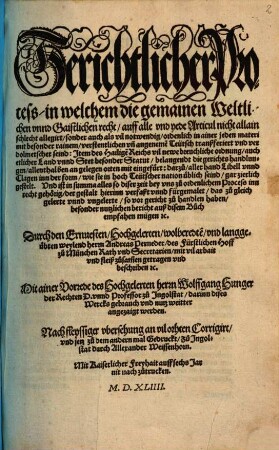 2
Gerichtlicher Pro
cess/ in welchem die gemainen Weltli-
chen vnnd Gaistlichen recht/ auff alle vnd yede Articul nicht allain
schlecht allegirt/ sonder auch als vil notwendig/ ordenlich in ainer materi
mit besonder namem/ verstentlichen vnd angenemē Teutsch transferiert vnd ver
dolmetschet seind: Item des Hayligē Reichs vn̄ andere breuchliche ordnung/ auch
etlicher Land vnnd Stet besonder Statut/ belangende die gerichts handlun-
gen/ allenthalben an gelegen orten mit eingefürt: darzů aller hand Libell vnnd
Clagen inn der form/ wie sie in hoch Teutscher nation üblich seind/ gar zierlich
gestelt. Vnd ist in summa alles so diser zeit bey vns zů ordenlichem Process im
recht gehörig/ der gestalt hierinn verfasst vnnd fürgemalet/ das zů gleich
gelerte vnnd vngelerte/ so vor gericht zů handlen haben/
besonder nutzlichen bericht auß disem Bůch
empfahen mügen ꝛc.
Durch den Ernuesten/ Hochgelerten/ wolberedtē/ vnd langge-
übten weylend herrn Andreas Perneder/ des Fürstlichen Hoff
zů München Rath vnd Secretarien/ mit vil arbait
vnd fleiß zůsamen getragen vnd
beschriben ꝛc.
Mit ainer Vorrede des Hochgelerten herrn Wolffgang Hunger
der Rechten D. vnnd Professor zů Ingolstat/ darinn dises
Wercks gebrauch vnd nutz weitter
angezaigt werden.
Nach fleyssiger übersehung an vil orthen Corrigirt/
vnd jetz zů dem andern mal Gedruckt/ zů Ingol-
stat durch Allexander Weissenhorn.
Mit Kaiserlicher Freyhait auff sechs Jar
nit nach zůtrucken.
M. D. XLIIII.